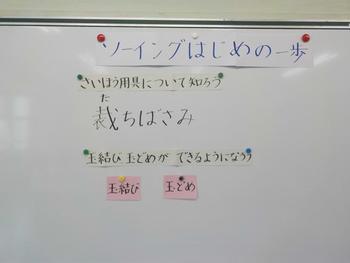 ソーイングはじめの一歩
さいほう用具について知ろう
た
裁ちばさみ
玉結び 玉どめが できるようになろう
玉結び 玉どめ